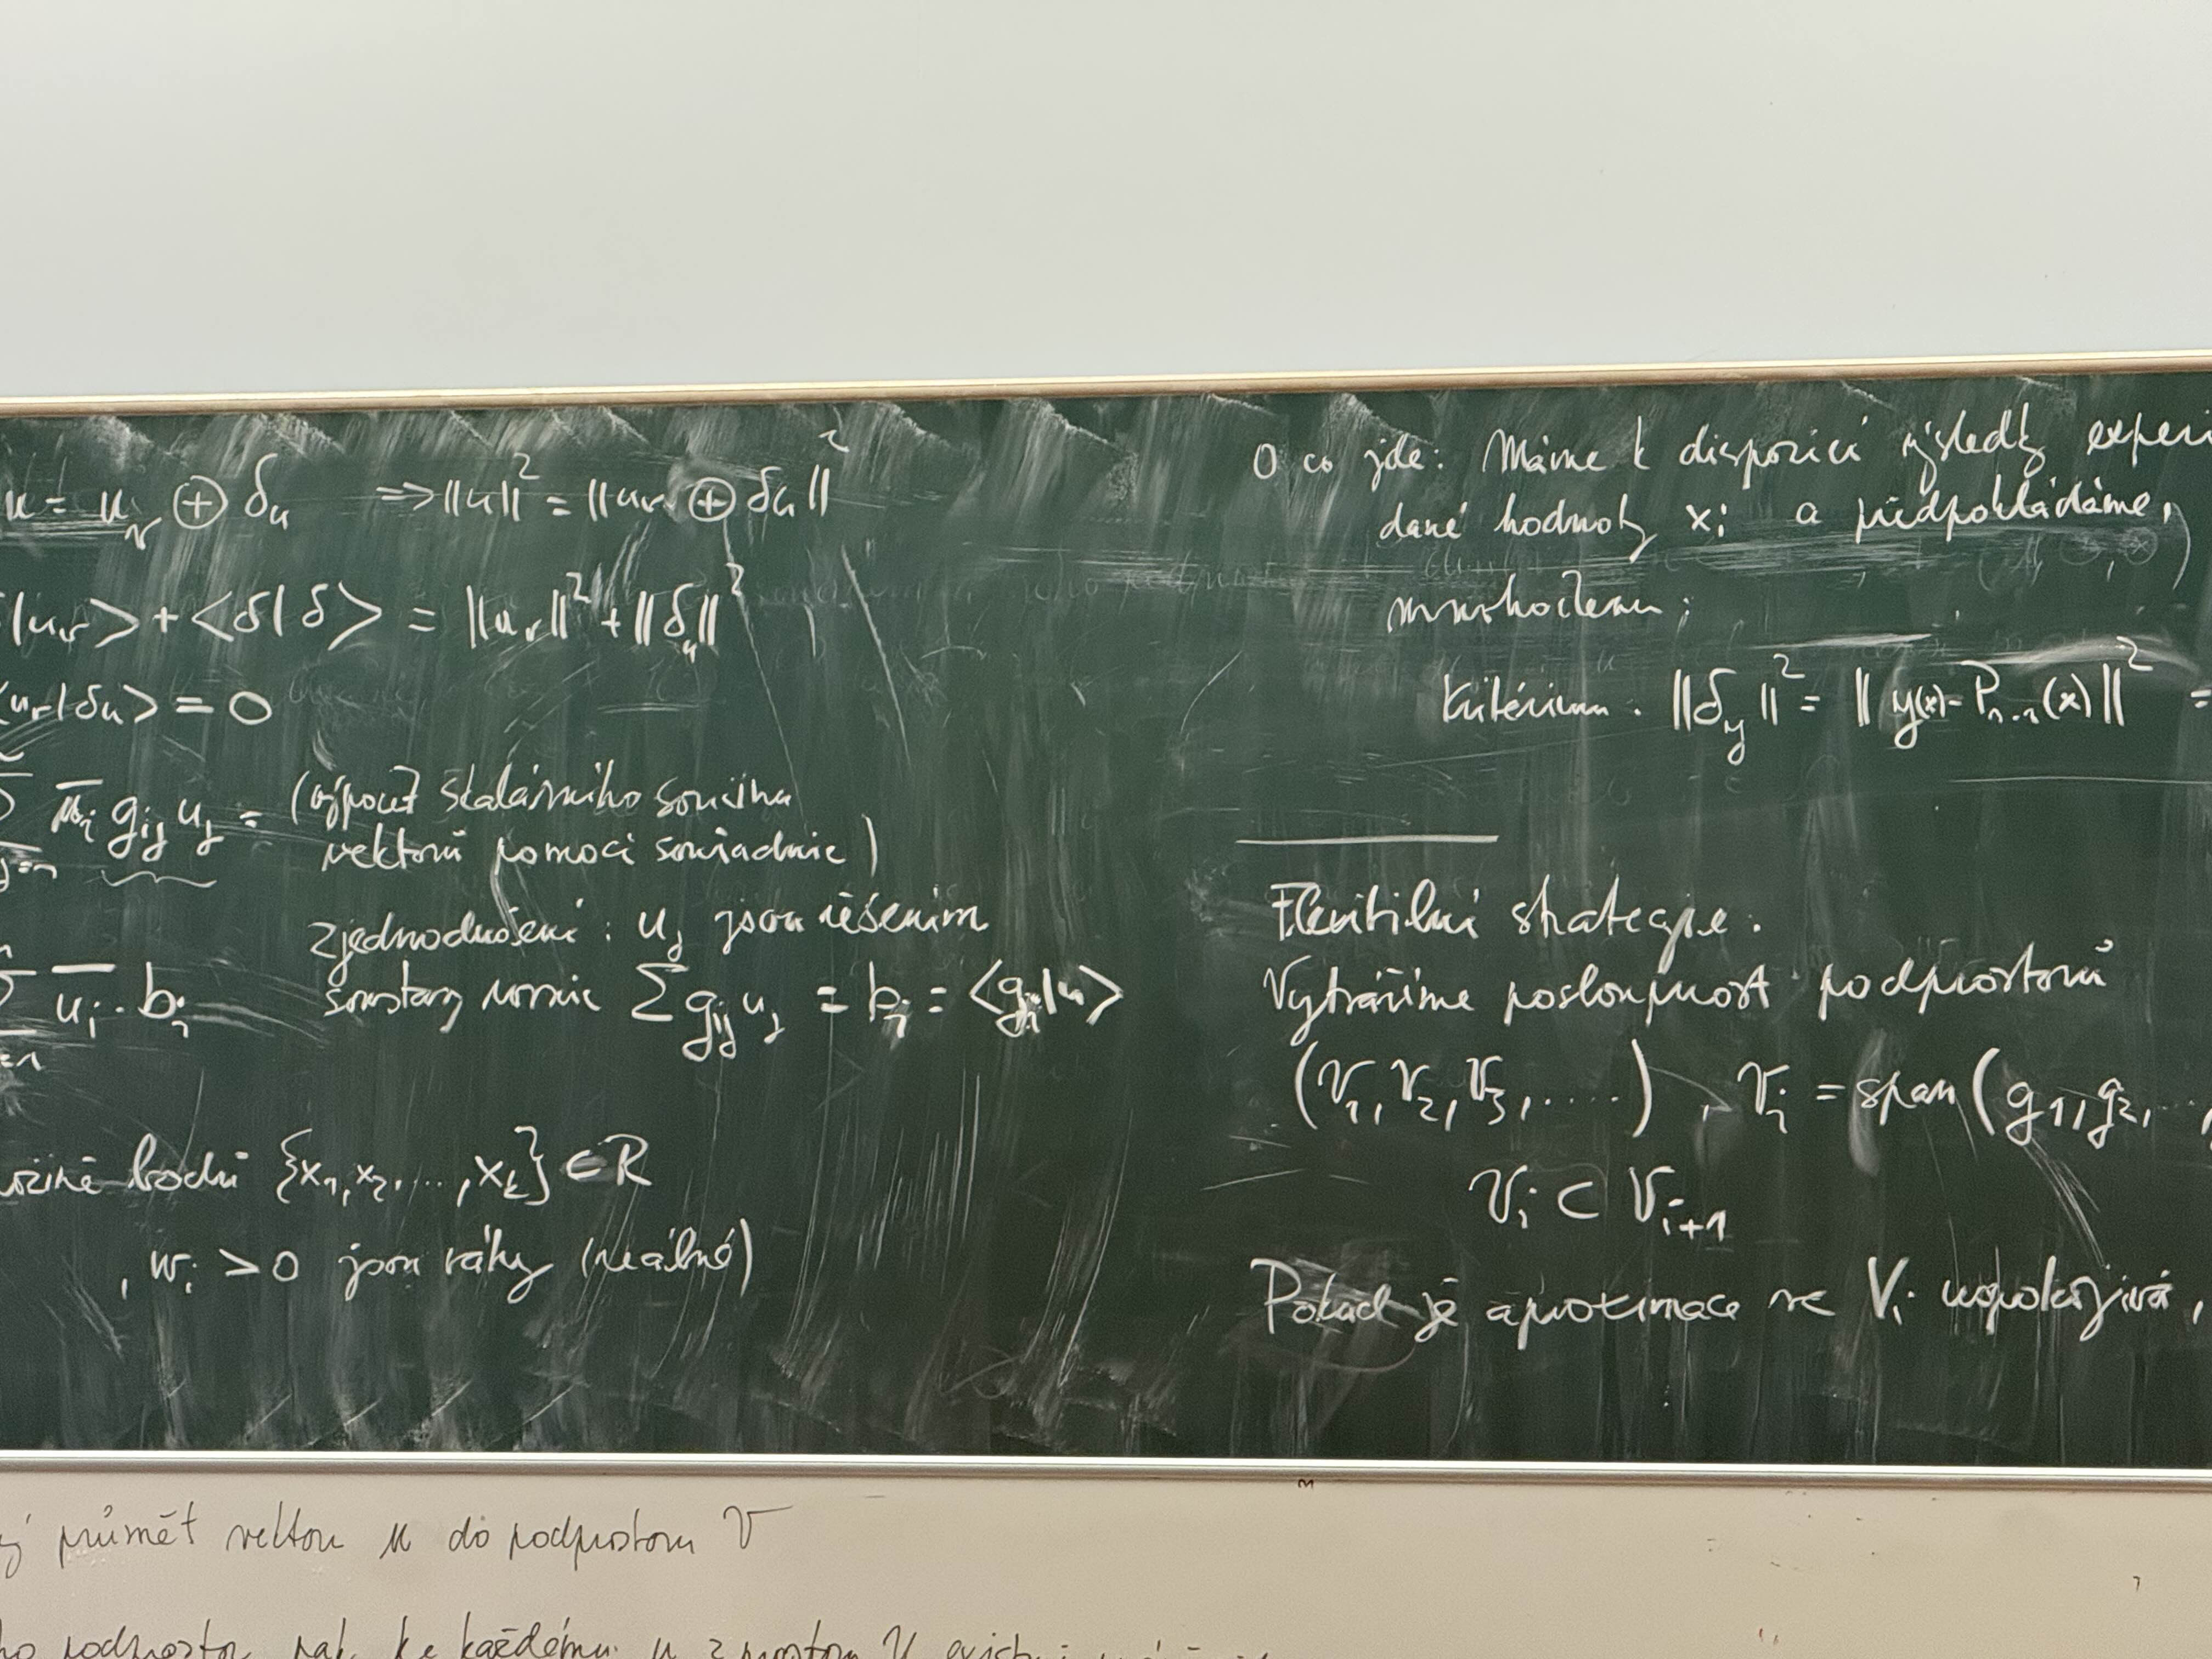 u = u_v ⊕ δ_u ⇒ ||u||² = ||u_v ⊕ δ_u||²
|u_v> + <δ|δ> = ||u_v||² + ||δ_u||²
<u_v|δ_u> = 0
g_ij u_j = (výpočet skalárního součinu
vektorů pomocí souřadnic)
zjednodušení: u_j jsou řešením
soustavy rovnic ∑ g_ij u_j = b_i = <g_i|u>
∑ u̅_i · b_i
bodů {x_1, x_2, ..., x_k} ⊂ R
, w_i > 0 jsou váhy (reálné)
O co jde: Máme k dispozici výsledky exper
dané hodnoty x_i a předpokládáme,
mnohočlenu:
kritérium: ||δ_y||² = || y(x) - P_n-1(x) ||² =
Flexibilní strategie:
Vytváříme posloupnost podprostorů
(V_1, V_2, V_3, ....) , V_i = span(g_1, g_2, ...,
V_i ⊂ V_i+1
Pokud je aproximace ve V_i uspokojivá,
průmět vektoru u do podprostoru V
podprostor, pak ke každému u z prostoru U